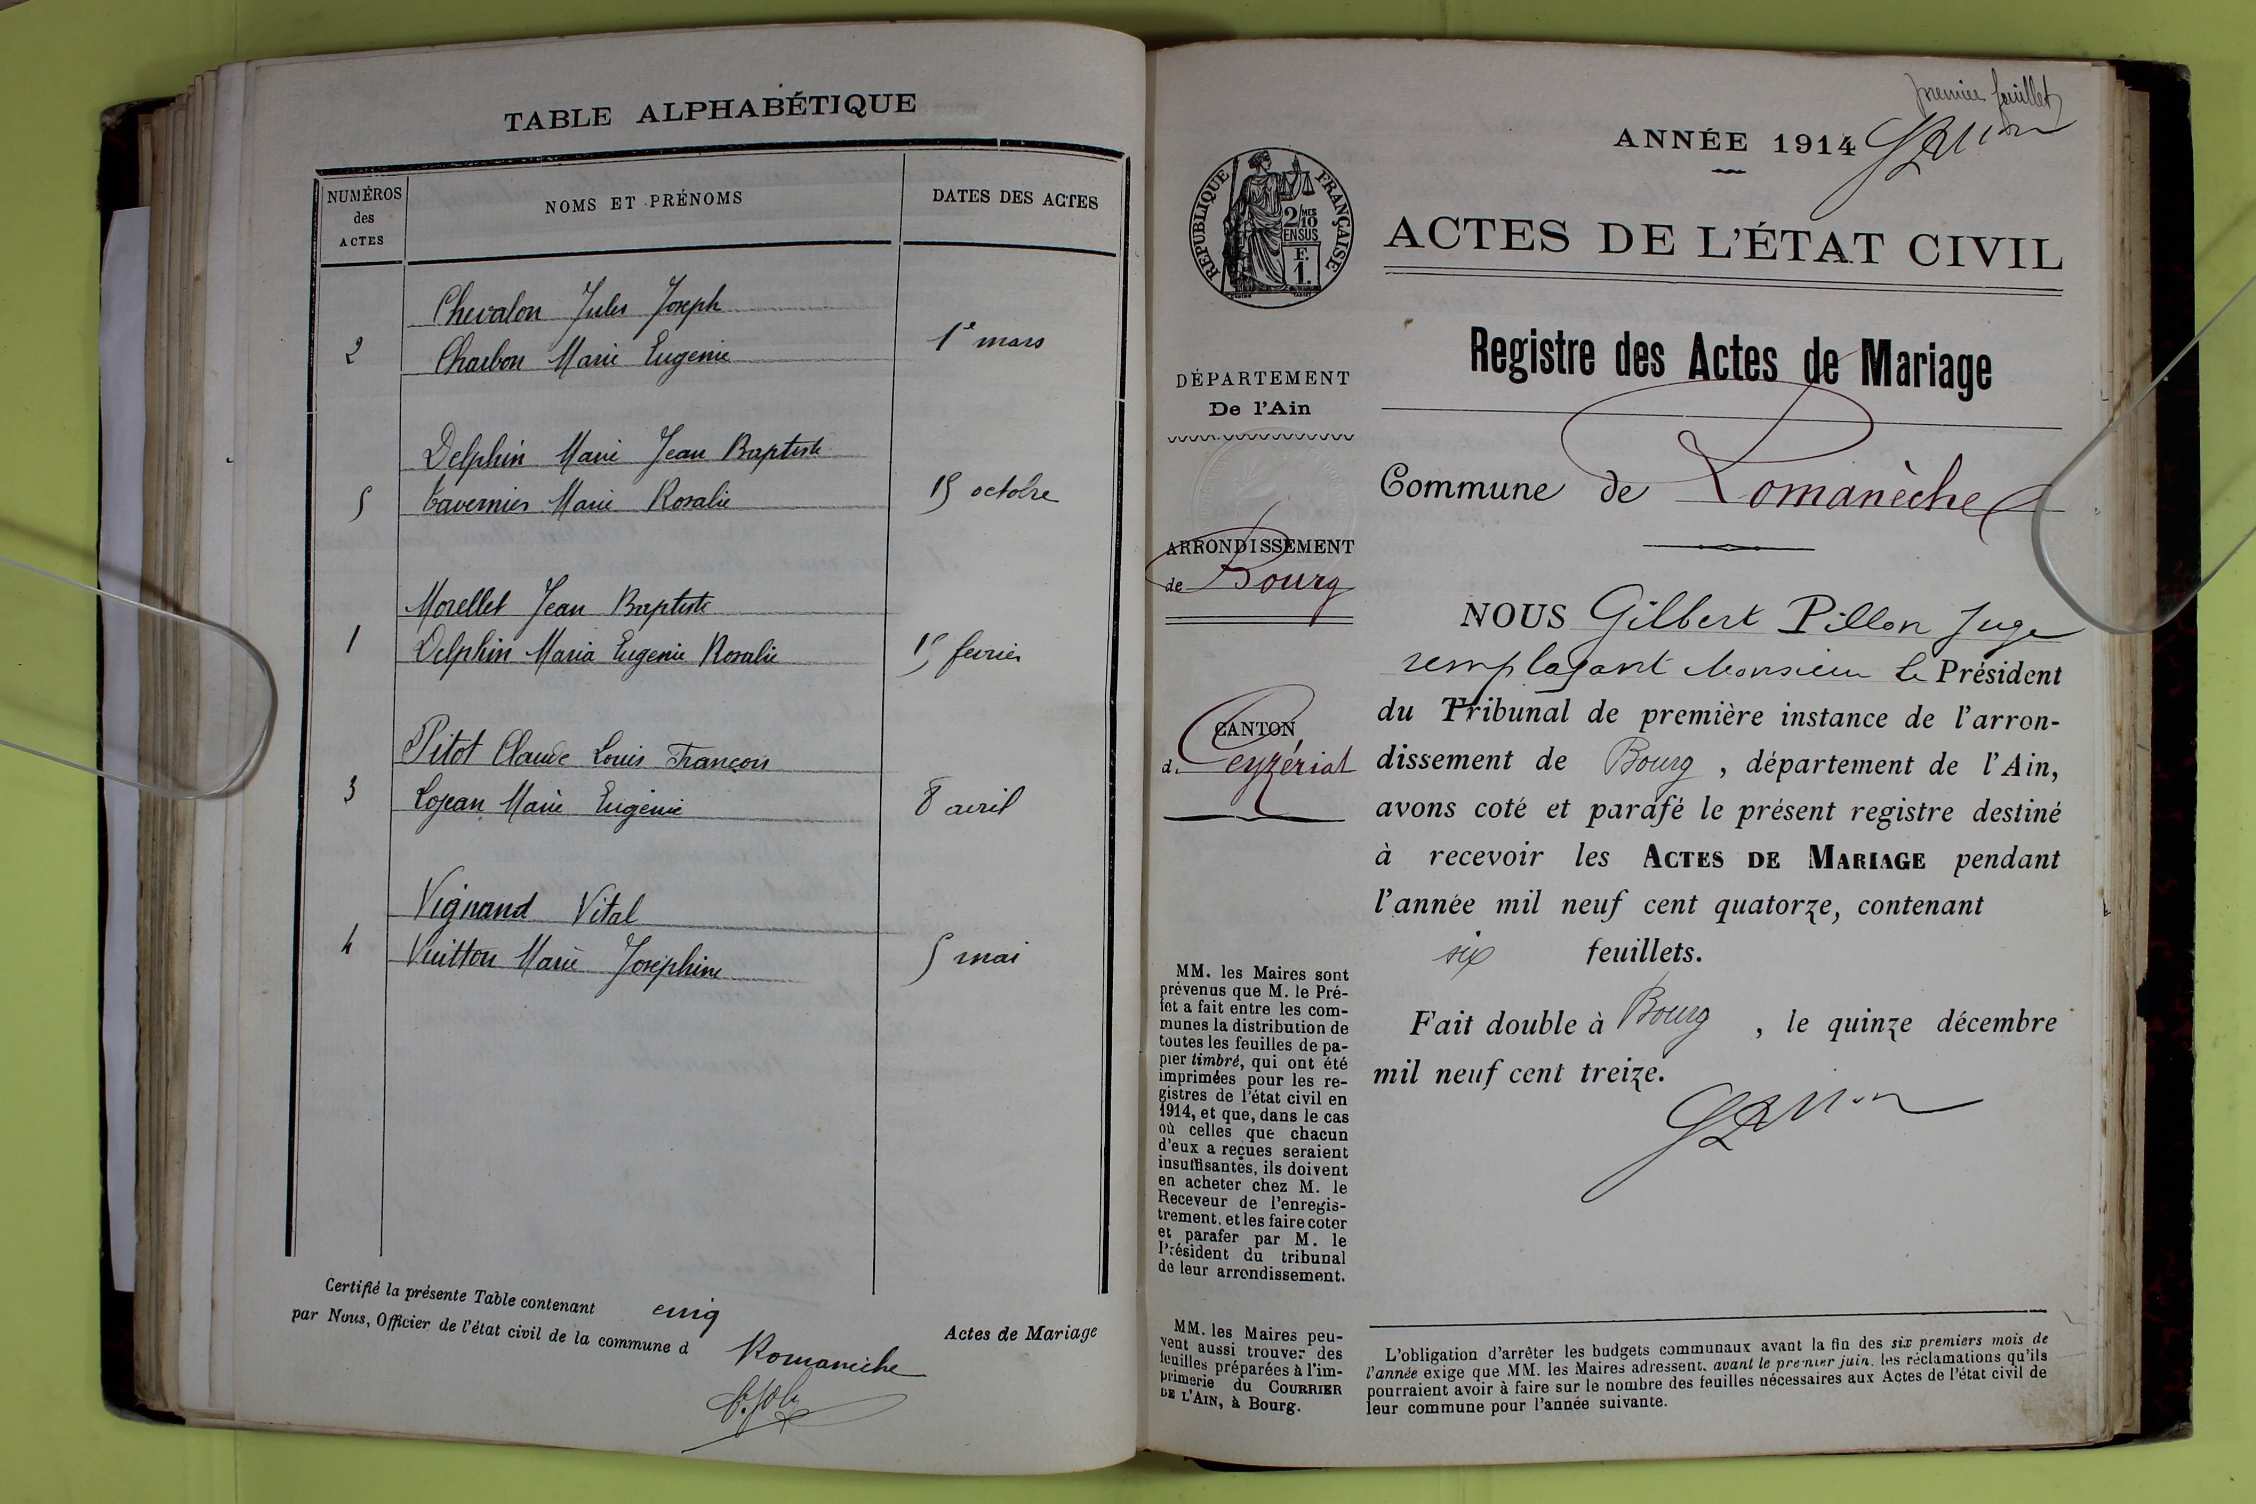 TABLE ALPHABÉTIQUE
NUMÉROS
des
ACTES
NOMS ET PRÉNOMS
DATES DES ACTES
Chevalon Jules Joseph
2 Charbon Marie Eugenie 1e mars
Delphin Marie Jean Baptiste
5 Tavernier Marie Rosalie 15 octobre
Morellet Jean Baptiste
1 Delphin Maria Eugenie Rosalie 15 fevrier
Pitot Claude Louis François
3 Lojean Marie Eugénie 8 avril
Vignand Vital
4 Vuitton Marie Joséphine 5 mai
Certifié la présente Table contenant cinq Actes de Mariage
par Nous, Officier de l'état civil de la commune d Romanèche
premier feuillet
ANNÉE 1914
RÉPUBLIQUE FRANÇAISE
2/10 MES
EN SUS
F.
1.
ACTES DE L'ÉTAT CIVIL
Registre des Actes de Mariage
DÉPARTEMENT
De l'Ain
Commune de Romanèche
ARRONDISSEMENT
de Bourg
CANTON
d. Ceyzériat
NOUS Gilbert Pillon Juge
remplaçant Monsieur le Président
du Tribunal de première instance de l'arron-
dissement de Bourg, département de l'Ain,
avons coté et parafé le présent registre destiné
à recevoir les ACTES DE MARIAGE pendant
l'année mil neuf cent quatorze, contenant
six feuillets.
Fait double à Bourg, le quinze décembre
mil neuf cent treize.
MM. les Maires sont
prévenus que M. le Pré-
fet a fait entre les com-
munes la distribution de
toutes les feuilles de pa-
pier timbré, qui ont été
imprimées pour les re-
gistres de l'état civil en
1914, et que, dans le cas
où celles que chacun
d'eux a reçues seraient
insuffisantes, ils doivent
en acheter chez M. le
Receveur de l'enregis-
trement, et les faire coter
et parafer par M. le
Président du tribunal
de leur arrondissement.
MM. les Maires peu-
vent aussi trouver des
feuilles préparées à l'im-
primerie du COURRIER
DE L'AIN, à Bourg.
L'obligation d'arrêter les budgets communaux avant la fin des six premiers mois de
l'année exige que MM. les Maires adressent, avant le premier juin, les réclamations qu'ils
pourraient avoir à faire sur le nombre des feuilles nécessaires aux Actes de l'état civil de
leur commune pour l'année suivante.